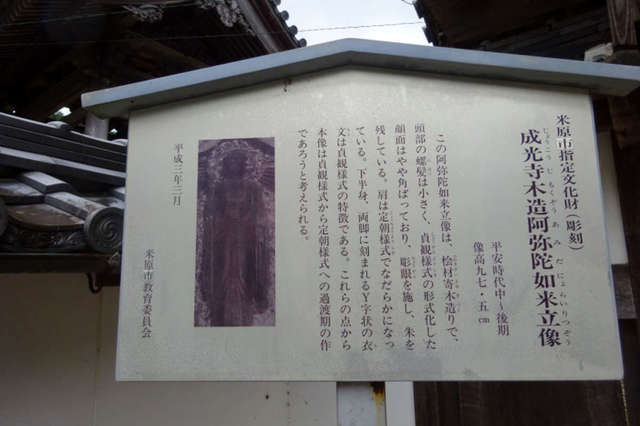 米原市指定文化財(彫刻)
じょうこうじもくぞうあみだにょらいりつぞう
成光寺木造阿弥陀如来立像
平安時代中~後期
像高九七・五㎝
この阿弥陀如来立像は、桧材寄木造りで、
頭部の螺髪は小さく、貞観様式の形式化した
顔面はやや角ばっており、彫眼を施し、朱を
残している。肩は定朝様式でなだらかになっ
ている。下半身、両脚に刻まれるY字状の衣
文は貞観様式の特徴である。これらの点から
本像は貞観様式から定朝様式への過渡期の作
であろうと考えられる。
平成三年三月
米原市教育委員会